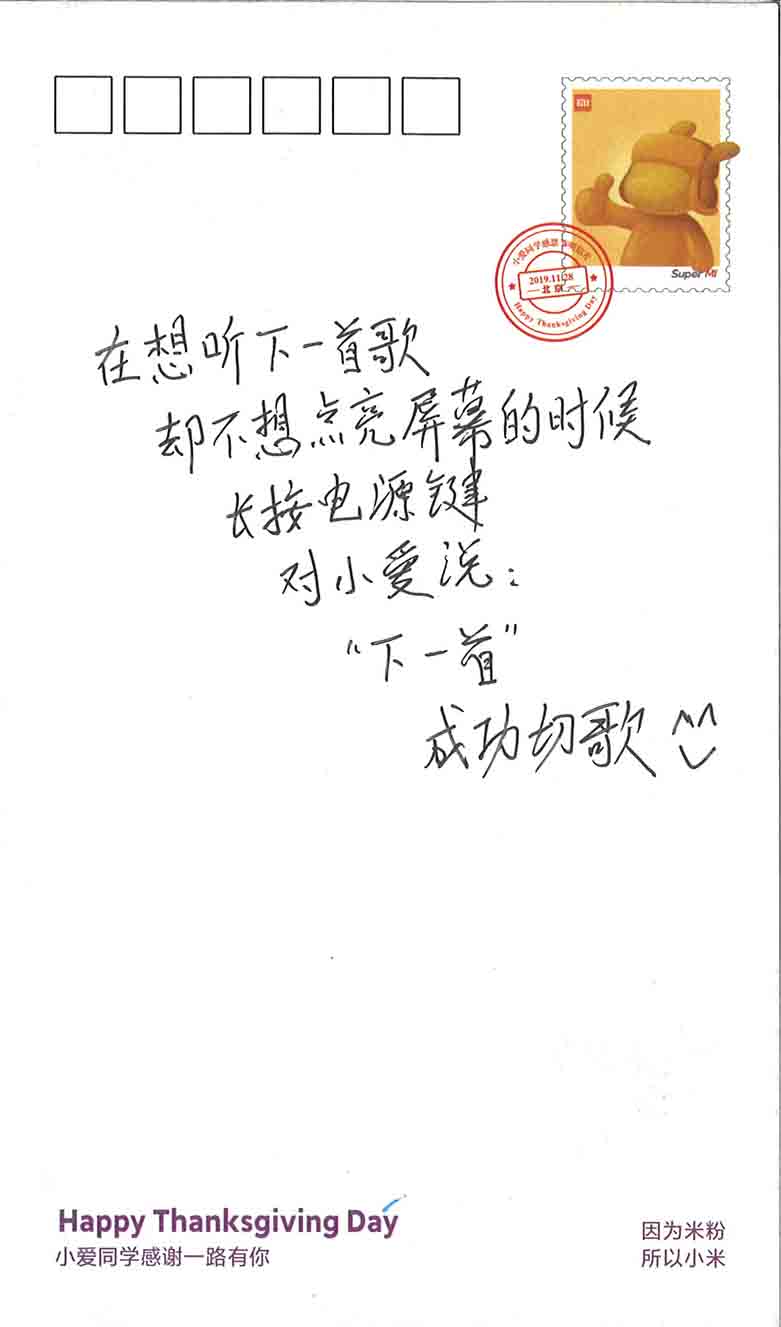 MI
Super MI
小爱同学感恩节明信片
2019.11.28
北京
Happy Thanksgiving Day
在想听下一首歌
却不想点亮屏幕的时候
长按电源键
对小愛说：
“下一首”
成功切歌
Happy Thanksgiving Day
小爱同学感谢一路有你
因为米粉
所以小米